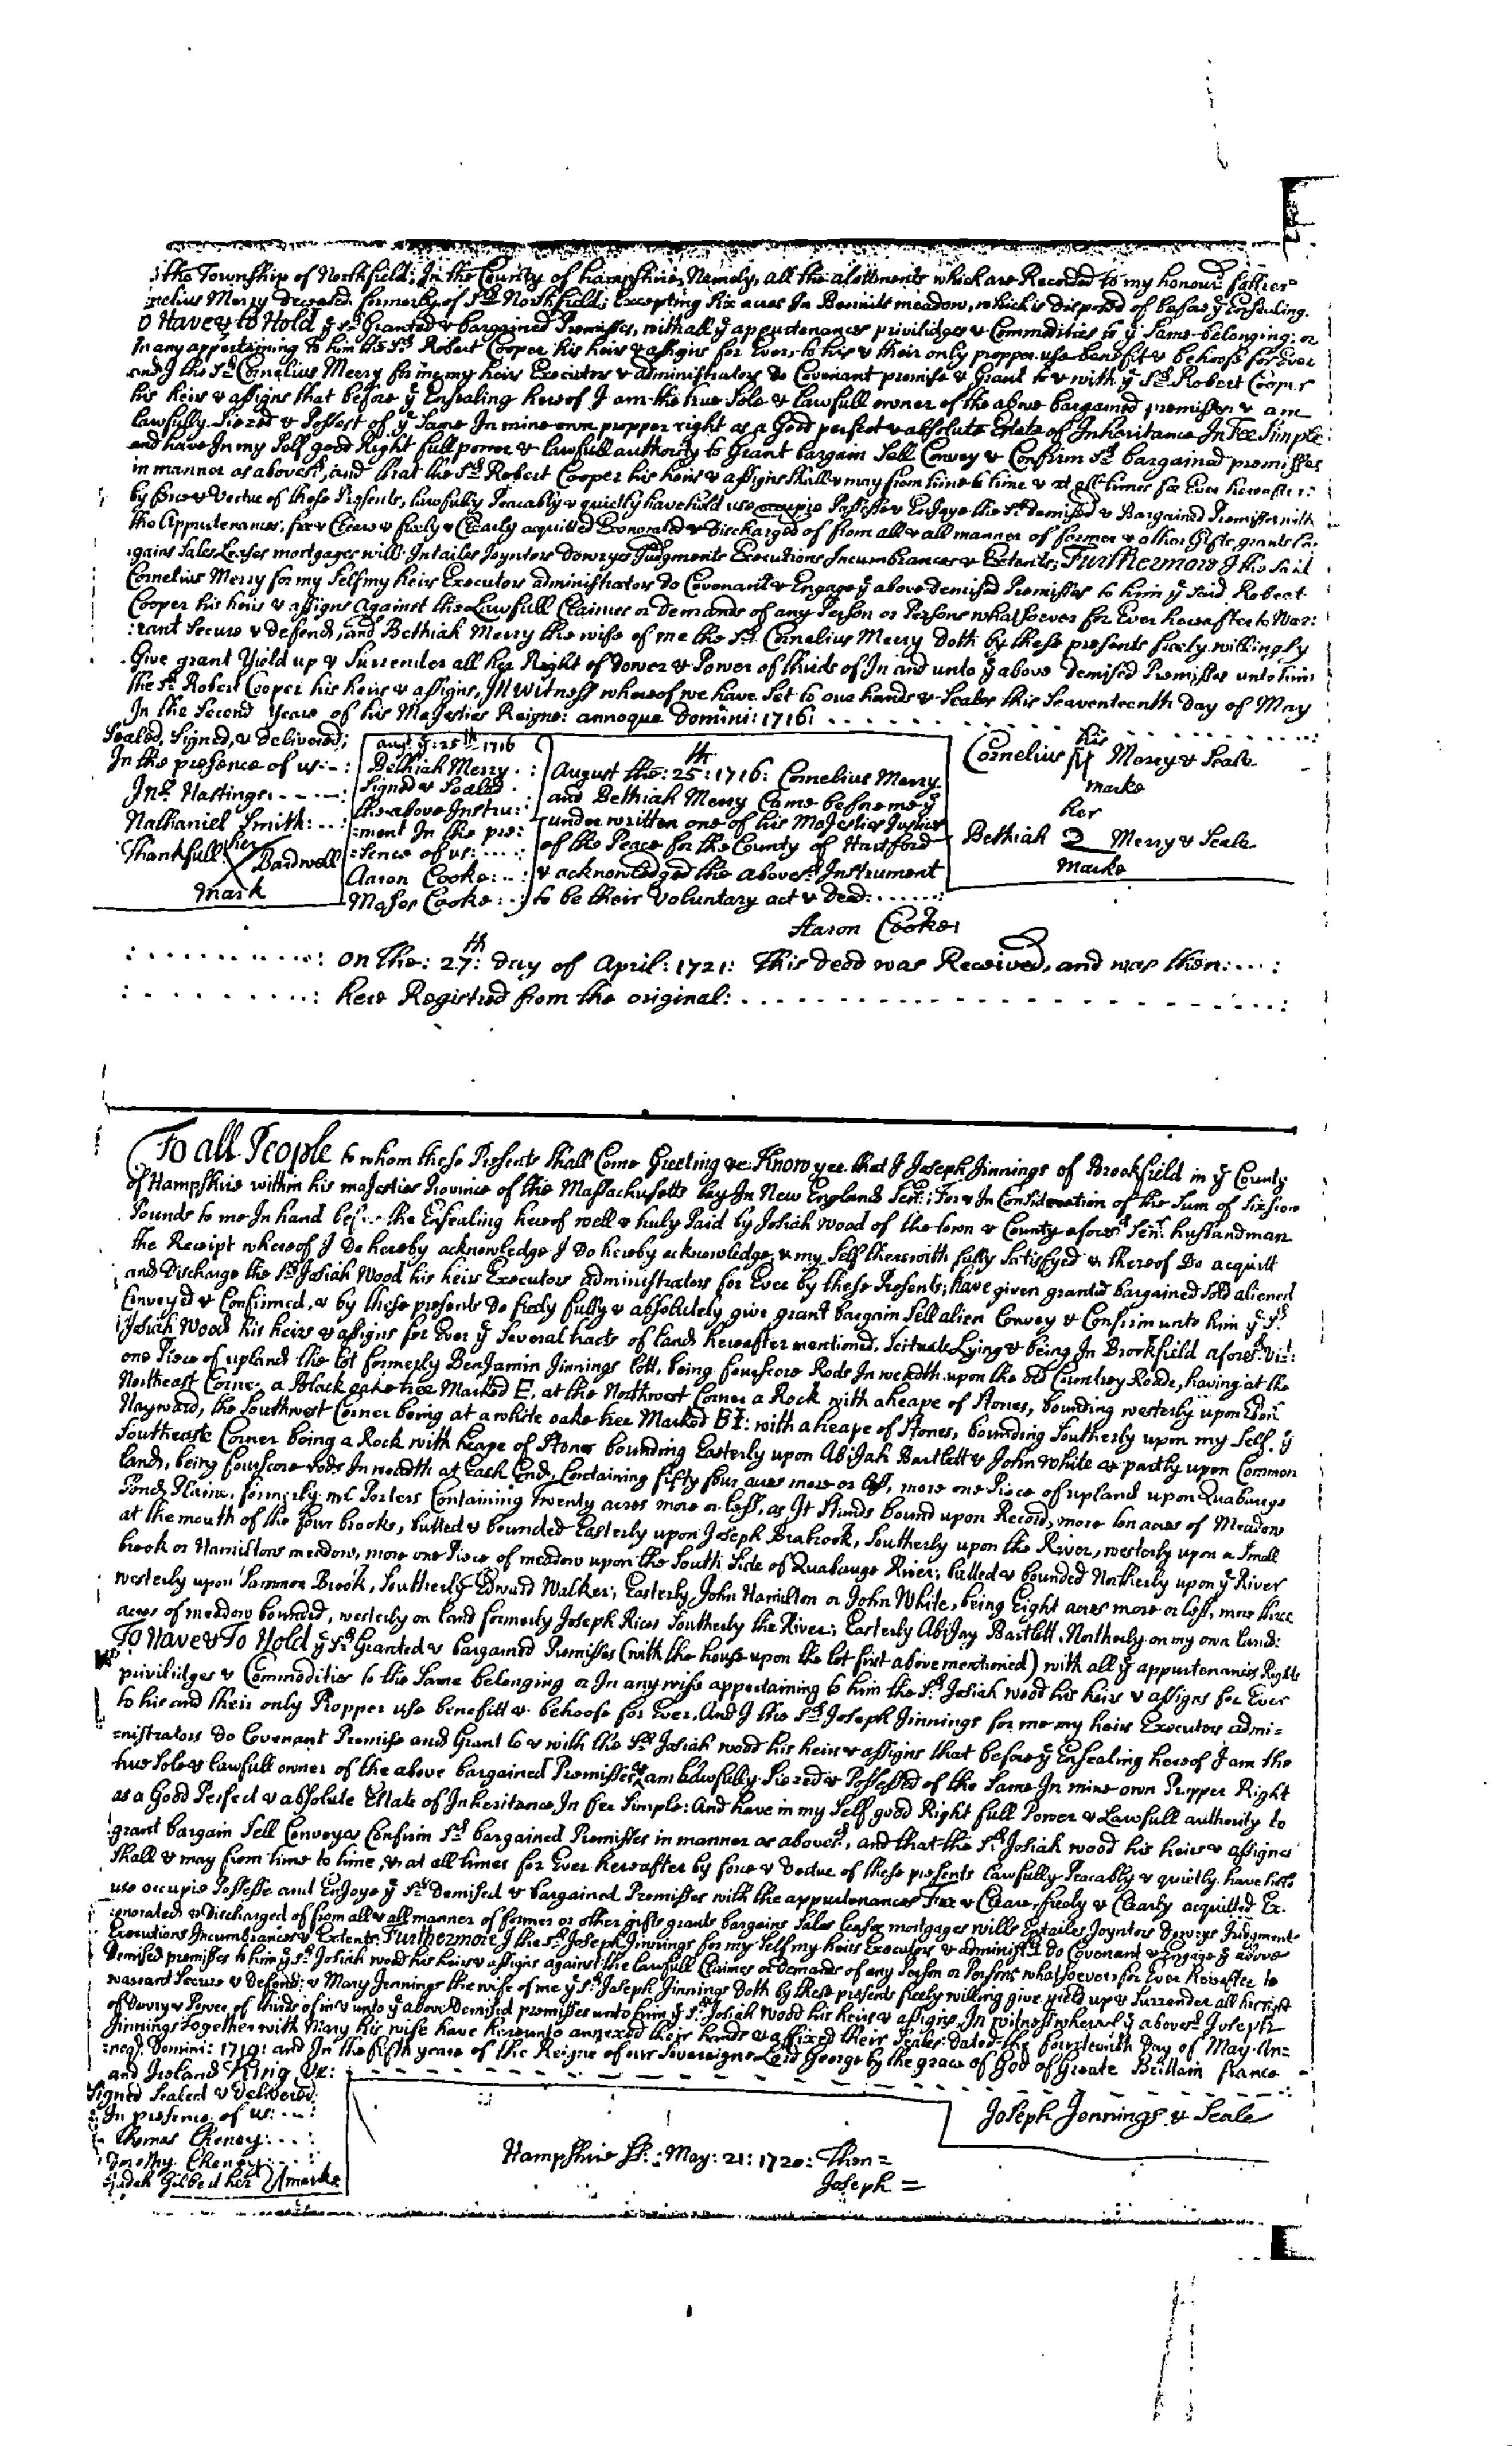 the Township of Northfield; In the County of hampshire, Namely, all the alottments which are Recorded to my honourd father
nelius Merry deceased formerly of sd Northfield; Excepting six acres In Bennits meadow, which is disposed of before ye Ensealing.
o Have & to Hold ye sd Granted & bargained Premisses, with all ye appurtenances priviledges & Commodities to ye same belonging; or
In any appertaining to him the sd Robert Cooper his heirs & assigns for Ever; to his & their only propper use benefit & behoofe for Ever
and I the sd Cornelius Merry for me my heirs Executors & administrators do Covenant promise & Grant to & with ye sd Robert Cooper
his heirs & assigns that before ye Ensealing hereof I am the true Sole & Lawfull owner of the above bargained premisses & am
lawfully Siezed & Possest of ye Same In mine own propper right as a Good perfect & absolute Estate of Inheritance In Fee Simple:
and have In my Self good Right full power & lawfull authority to Grant bargain Sell Convey & Confirm sd bargained premisses
in manner as abovesd, and that the sd Robert Cooper his heirs & assigns shall & may from time to time & at all times for Ever hereafter:
by force & Vertue of these Presents, lawfully Peacably & quietly have hold use occupie Possesse & Enjoye the sd demised & Bargained Premisses with
the Appurtenances, free & Cleare & freely & Clearly acquitted Exonorated & Discharged of from all & all manner of former & other Gifts, grants bar:
:gains Sales Leases mortgages wills Intailes Joynters Dowrys Judgments Executions Incumbrances & Extents; Furthermore I the said
Cornelius Merry for my Self my heirs Executors administrators do Covenant & Engage ye above demised Premisses to him ye said Robert
Cooper his heirs & assigns Against the Lawfull Claimes or demands of any Person or Persons whatsoever for Ever hereafter to War:
:rant Secure & defend, and Bethiah Merry the wife of me the sd Cornelius Merry doth by these presents freely willingly
Give grant Yield up & Surrender all her Right of Dower & Power of thirds of In and unto ye above Demised Premisses unto him
the sd Robert Cooper his heirs & assigns, In witness whereof we have Set to our hands & Seales this Seaventeenth day of May
In the Second Yeare of his Majesties Reigne: annoque Domini: 1716:
Sealed, Signed, & delivered;
In the presence of us:
Jno Hastings
Nathaniel Smith:
Thankfull her Bardwell
mark
augt ye: 25th 1716
Bethiah Merry
Signed & Sealed
the above Instru:
:ment In the pre:
:sence of us:
Aaron Cooke:
Moses Cooke:
August the: 25th: 1716: Cornelius Merry
and Bethiah Merry Came before me ye
under written one of his Majesties Justices
of the Peace for the County of Hartford
& acknowledged the abovesd Instrument
to be their Voluntary act & deed:
Aaron Cooke:
his
Cornelius Merry & Seale
marke
her
Bethiah Merry & Seale
marke
on the: 27th: day of April: 1721: This deed was Received, and was then:
here Registred from the original:
To all People to whom these Presents shall Come Greeting &c: Know yee that I Joseph Jinnings of Brookfield in ye County
of Hampshire within his majesties Province of the Massachusetts bay In New England Senr; For & In Consideration of the Sum of Sixscore
Pounds to me In hand before the Ensealing hereof well & truly Paid by Josiah Wood of the town & County aforesd Senr husbandman
the Receipt whereof I Do hereby acknowledge I Do hereby acknowledge, & my Self therewith fully Satisfyed & thereof Do acquitt
and Discharge the sd Josiah Wood his heirs Executors administrators for Ever by these Presents; have given granted bargained Sold aliened
Conveyed & Confirmed, & by these presents Do freely fully & absolutely give grant bargain Sell alien Convey & Confirm unto him ye sd
Josiah Wood his heirs & assigns for Ever ye Several tracts of land hereafter mentioned, Scituate Lying & being In Brookfield aforesd Vizt:
one Piece of upland the lot formerly Benjamin Jinnings lott, being fourscore Rods In weadth upon the old Cuntrey Roade, having at the
Northeast Corner a Black oake tree Marked E, at the Northwest Corner a Rock with a heape of Stones, bounding westerly upon
Hayward, the Southwest Corner being at a white oake tree Marked BI: with a heape of Stones, bounding Southerly upon my Self, ye
Southeaste Corner being a Rock with heape of Stones bounding Easterly upon Abijah Bartlett & John White & partly upon Common
land, being fourscore rods In weadth at Each End, Containing fifty four acres more or less, more one Piece of upland upon Quabauge
Pond Plaine, formerly mr Porters Containing Twenty acres more or less, as It Stands bound upon Record, more ten acres of Meadow
at the mouth of the four brooks, butted & bounded Easterly upon Joseph Brabrook, Southerly upon the River, westerly upon a Small
brook or Hamiltons meadow, more one Piece of meadow upon the South Side of Quabauge River; butted & bounded Northerly upon ye River
westerly upon Sammon Brook, Southerly Edward Walker; Easterly John Hamilton or John White, being Eight acres more or less, more three
acres of meadow bounded, westerly on land formerly Joseph Rices Southerly the River; Easterly Abijay Bartlett, Northerly on my own land:
To Have & To Hold ye sd Granted & bargained Premisses (with the house upon the lot first above mentioned) with all ye appurtenances Rights
priviledges & Commodities to the Same belonging or In any wise appertaining to him the sd Josiah wood his heirs & assigns for Ever
to his and their only Propper use benefitt & behoofe for Ever, And I the sd Joseph Jinnings for me my heirs Executors admi=
=nistrators do Covenant Promise and Grant to & with the sd Josiah wood his heirs & assigns that before ye Ensealing hereof I am the
true Sole & lawfull owner of the above bargained Premisses & am Lawfully Siezed & Possessed of the Same In mine own Propper Right
as a Good Perfect & absolute Estate of Inheritance In fee Simple: And have in my Self good Right full Power & Lawfull authority to
grant bargain Sell Convey & Confirm sd bargained Premisses in manner as abovesd, and that the sd Josiah wood his heirs & assignes
Shall & may from time to time, & at all times for Ever hereafter by force & Vertue of these presents lawfully Peacably & quietly have hold
use occupie Possesse and Enjoye ye sd demised & bargained Premisses with the appurtenances Free & Cleare, freely & Clearly acquitted Ex:
:onorated & Discharged of from all & all manner of former or other gifts grants bargains Sales leases mortgages wills Entailes Joynters dowrys Judgments
Executions Incumbrances & Extents: Furthermore I the sd Joseph Jinnings for my Self my heirs Executors & administrs do Covenant & Engage ye above
demised premisses to him ye sd Josiah wood his heirs & assigns against the lawfull Claimes or Demands of any Person or Persons whatsoever for Ever hereafter to
warrant Secure & defend: & Mary Jennings the wife of me ye sd Joseph Jinnings doth by these presents freely willing give yield up & Surrender all her right
of Dowry & Power of thirds of in & unto ye above Demised premisses unto him ye sd Josiah Wood his heirs & assigns, In witness whereof ye abovesd Joseph
Jinnings together with Mary his wife have hereunto annexed their hands & affixed their Seales: Dated the fourteenth Day of May An=
:noqr Domini: 1719: and In the fifth yeare of the Reigne of our Sovereigne Lord George by the grace of God of Greate Brittain france
and Ireland King &c:
Signed Sealed & Delivered
In presence of us:
Thomas Cheney:
Timothy Cheney:
Judah Gilbert her marke
Joseph Jennings & Seale
Hampshire Ss: May: 21: 1720: Then =
Joseph =